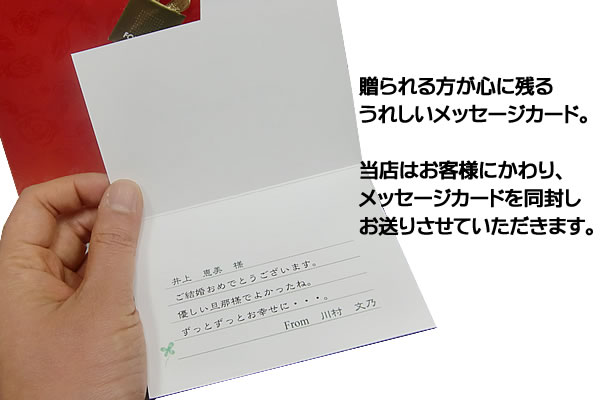 贈られる方が心に残る
うれしいメッセージカード。
当店はお客様にかわり、
メッセージカードを同封し
お送りさせていただきます。
井上 恵美 様
ご結婚おめでとうございます。
優しい旦那様でよかったね。
ずっとずっとお幸せに・・・。
From 川村 文乃